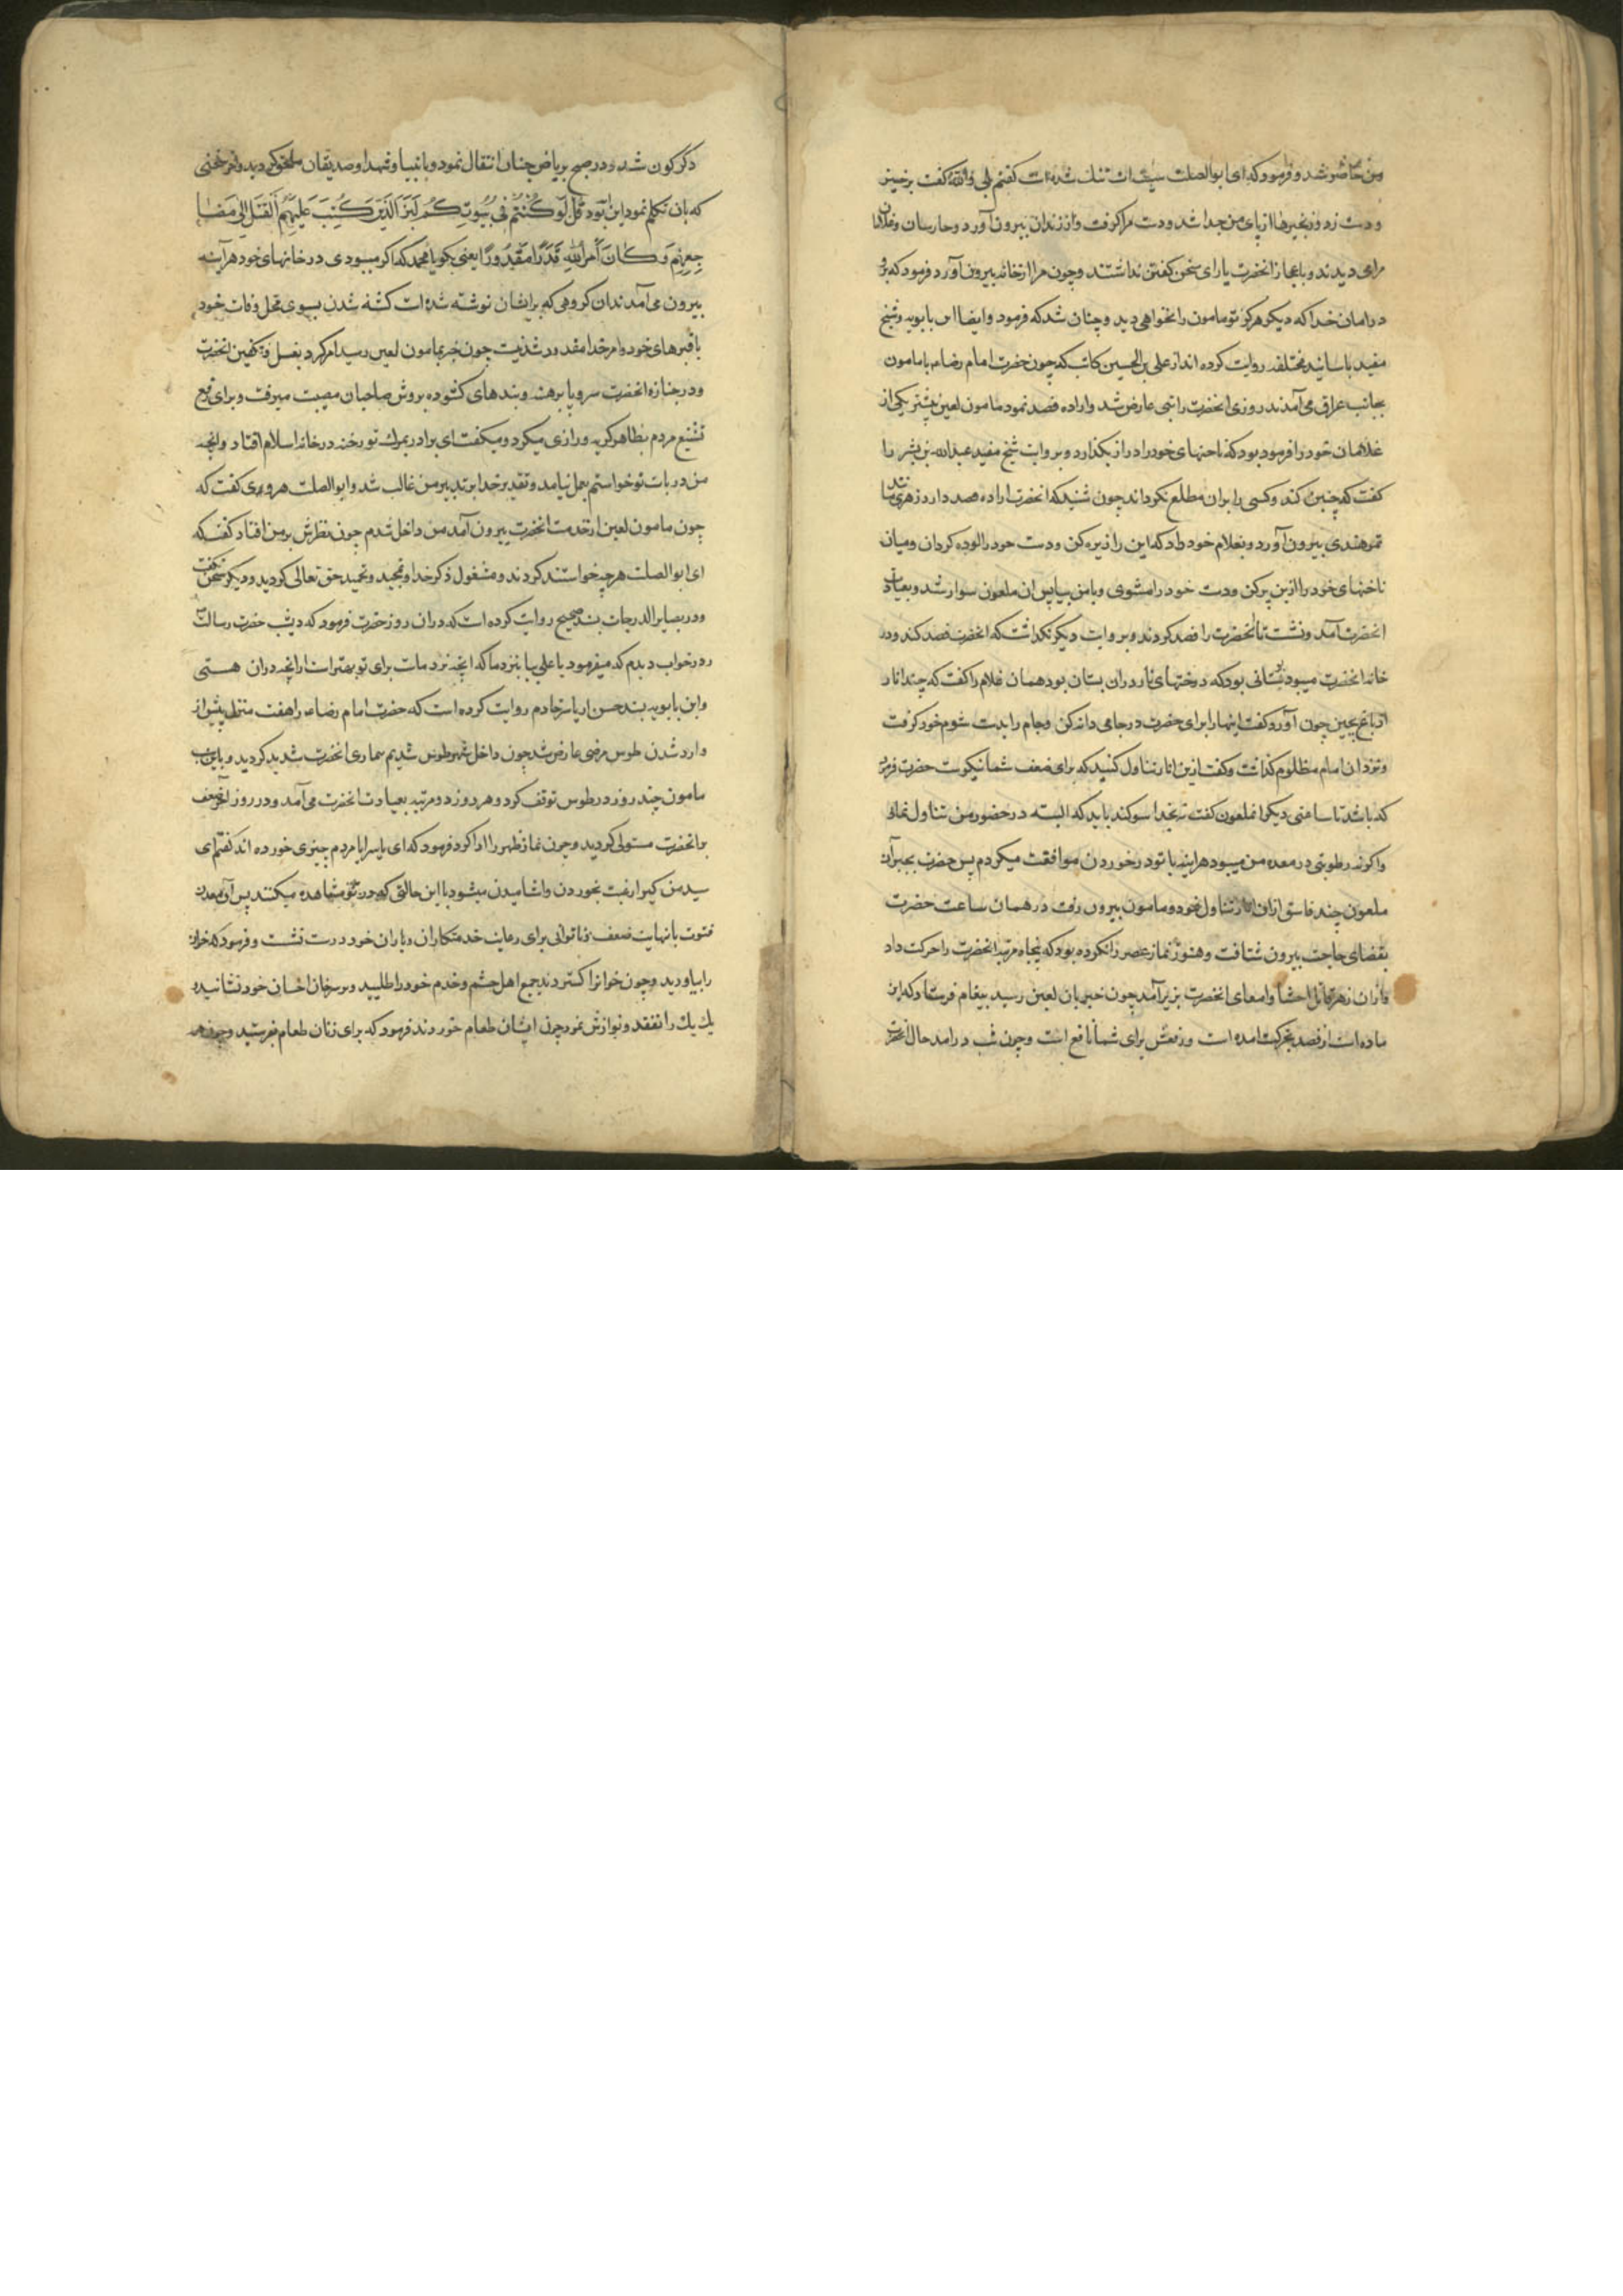 من حاضر شد و فرمود که ای ابوالصلت سینه ات تنك شده است کفتم بلی والله کفت برخیز
و دست زد و زنجیرها از پای من جدا شد و دست مرا کرفت و از زندان بیرون آورد و حارسان و غلامان
مرا می دیدند و باعجاز انحضرت یارای سخن کفتن نداشتند و چون مرا از خانه بیرون آورد فرمود که برو
در امان خدا که دیکر هرکز تو مامون را نخواهی دید و چنان شد که فرمود و ایضا ابن بابویه و شیخ
مفید باسانید مختلفه روایت کرده اند از علی بن الحسین کاتب که چون حضرت امام رضا ع با مامون
بجانب عراق می آمدند روزی انحضرت را تبی عارض شد و اراده فصد نمود مامون لعین پیشتر یکی از
غلامان خود را فرموده بود که ناخنهای خود را دراز بکذارد و بروایت شیخ مفید عبدالله بن بشیر را
کفت که چنین کند و کسی را بران مطلع نکرداند چون شنید که انحضرت اراده فصد دارد زهری مانند
تمر هندی بیرون آورد و بغلام خود داد که این را ریزه کن و دست خود را الوده کردان و میان
ناخنهای خود را ازین پر کن و دست خود را مشوی و با من بیا پس ان ملعون سوار شد و بعیادت
انحضرت آمد و نشست تا انحضرت را فصد کردند و بروایت دیکر نکذاشت که انحضرت فصد کند و در
خانه انحضرت میبود بستانی بود که درختهای نار در ان بستان بود همان غلام را کفت که چند انار
از باغ بچین چون آورد کفت اینها را برای حضرت در جامی دانه کن و جام را بدست شوم خود کرفت
و نزد ان امام مظلوم کذاشت و کفت ازین انار تناول کنید که برای ضعف شما نیکوست حضرت فرمود
که باشد تا ساعتی دیکر انملعون کفت نه بخدا سوکند باید که البته در حضور من تناول نمائی
و اکر نه رطوبتی در معده من میبود هراینه با تو در خوردن موافقت میکردم پس حضرت بجبر آن
ملعون چند قاشق ازان انار تناول نمود و مامون بیرون رفت در همان ساعت حضرت
بقضای حاجت بیرون شتافت و هنوز نماز عصر را نکرده بود که پنجاه مرتبه انحضرت را حرکت داد
و ازان زهر قاتل احشا و امعای انحضرت بزیر آمد چون خبر بان لعین رسید پیغام فرستاد که این
ماده است از فصد بحرکت امده است و دفعش برای شما نافع است و چون شب در امد حال انحضرت
دکرکون شد و در صبح بریاض جنان انتقال نمود و بانبیا و شهدا و صدیقان ملحق کردید و اخر سخنی
که بان تکلم نمود این بود قُل لَو كُنتُم فِي بُيُوتِكُم لَبَرَزَ الَّذِينَ كُتِبَ عَلَيهِمُ القَتلُ اِلَى مَضَا
جِعِهِم وَكَانَ أَمرُ اللهِ قَدَرًا مَقدُورًا یعنی بکو یا محمد که اکر میبودی در خانهای خود هر آینه
بیرون می آمدند ان کروهی که برایشان نوشته شده است کشته شدن بسوی محل وفات خود
یا قبرهای خود و امر خدا مقدر و شدنیست چون خبر بمامون لعین رسید امر کرد بغسل و تکفین انحضرت
و در جنازه انحضرت سر و پا برهنه و بندهای کشوده بروش صاحبان مصیبت میرفت و برای رفع
تشنیع مردم بظاهر کریه و زاری میکرد و میکفت ای برادر بمرك تو رخنه در خانه اسلام افتاد و انچه
من در باب تو خواستم بعمل نیامد و تقدیر خدا بر تدبیر من غالب شد و ابوالصلت هروی کفت که
چون مامون لعین از خدمت انحضرت بیرون آمد من داخل شدم چون نظرش بر من افتاد کفت که
ای ابوالصلت هرچه خواستند کردند و مشغول ذکر خدا و تمجید و تحمید حق تعالی کردید و دیکر سخن نکفت
و در بصایر الدرجات بسند صحیح روایت کرده است که دران روز حضرت فرمود که دیشب حضرت رسالت
را در خواب دیدم که میفرمود یا علی بیا بنزد ما که انچه نزد ماست برای تو بهتر است از انچه دران هستی
و ابن بابویه بسند حسن از یاسر خادم روایت کرده است که حضرت امام رضا ع را هفت منزل پیش از
وارد شدن طوس مرضی عارض شد چون داخل شهر طوس شدیم بیماری انحضرت شدید کردید و باین سبب
مامون چند روز در طوس توقف کرد و هر روز دو مرتبه بعیادت انحضرت می آمد و در روز اخر ضعف
بر انحضرت مستولی کردید و چون نماز ظهر را ادا کرد فرمود که ای یاسر ایا مردم چیزی خورده اند کفتم ای
سید من کیرا رغبت بخوردن و اشامیدن میشود با این حالتی که در تو مشاهده میکنند پس آن معدن
فتوت با نهایت ضعف و ناتوانی برای رعایت خدمتکاران و یاران خود درست نشست و فرمود که خوان
را بیاورید و چون خوانرا کستردند جمع اهل و حشم و خدم خود را طلبید و بر سر خوان احسان خود نشانید و
یك یك را تفقد و نوازش نمود چون ایشان طعام خوردند فرمود که برای زنان طعام بفرستید و چون همه